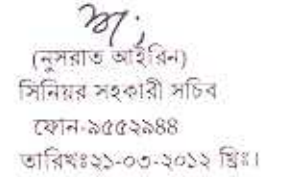 (নুসরাত আইরিন)
সিনিয়র সহকারী সচিব
ফোন-৯৫৫২৯৪৪
তারিখঃ২১-০৩-২০১২ খ্রিঃ।